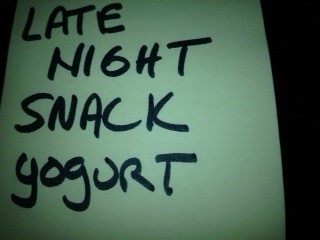 LATE
NIGHT
SNACK
yogurt